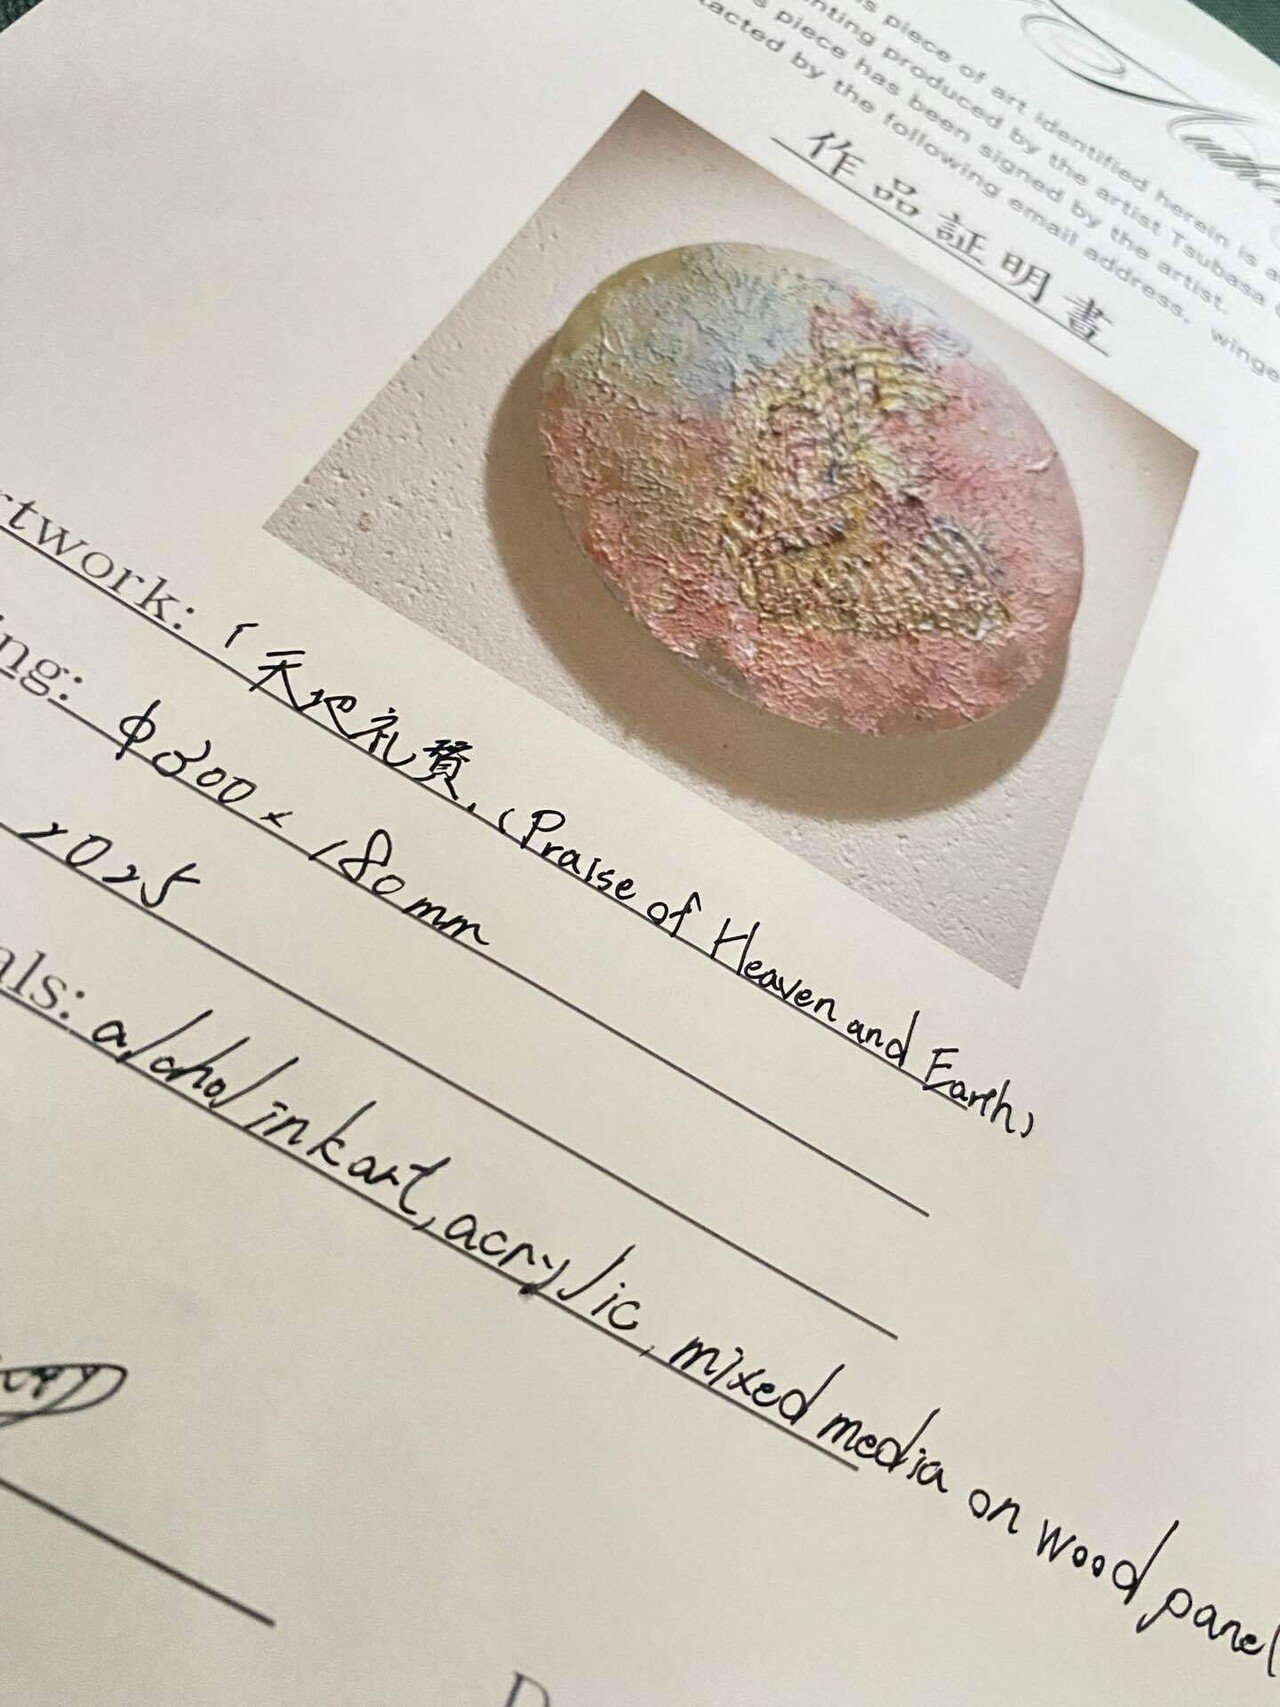 s piece of art identified herein is a
nting produced by the artist Tsubasa
s piece has been signed by the artist.
tacted by the following email address, winge
作品証明書
rtwork: 「天地礼賛」(Praise of Heaven and Earth)
ing: φ300×180mm
2025
als: alchol ink art, acrylic, mixed media on wood panel